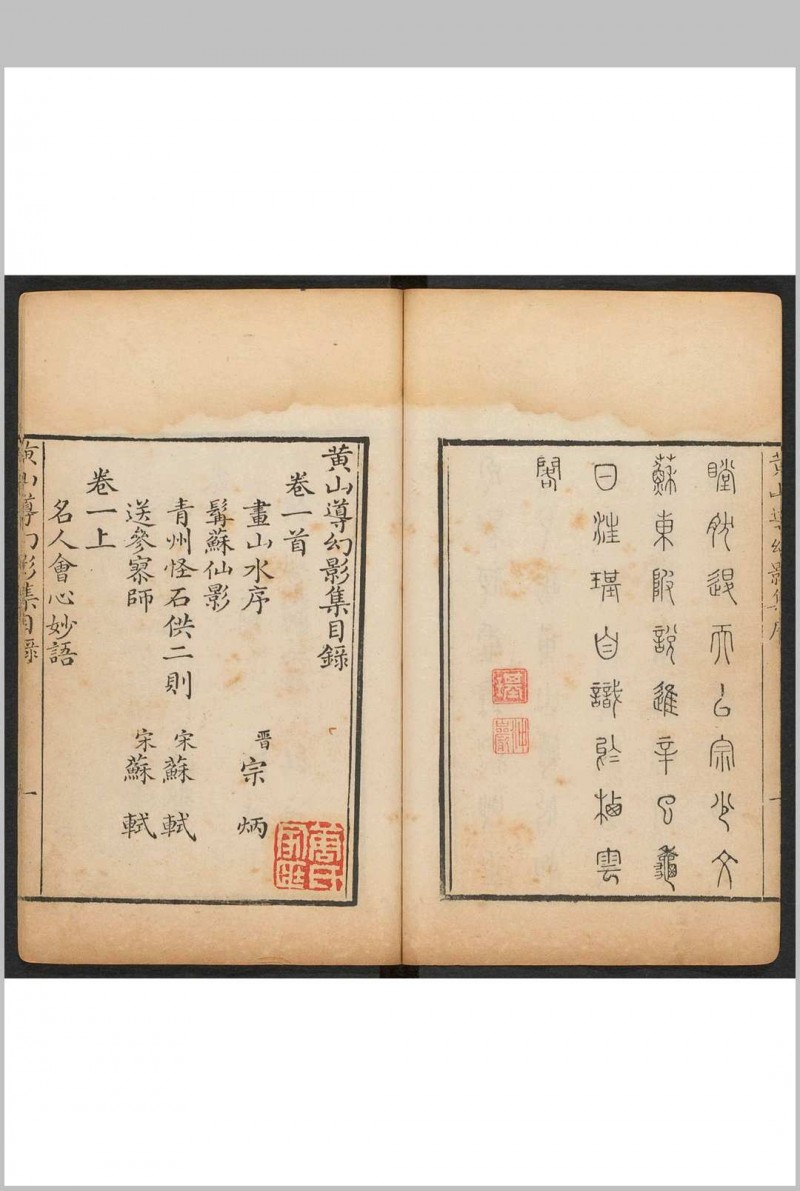 黄山導幻影集序 一
瞠退而以宗少文
蘇東阪說進辛巳龜
日汪璂自識於梅雲
閣
黄山導幻影集目錄
卷一首
畫山水序 晋宗炳
髯蘇仙影
青州怪石供二則 宋蘇軾
送參寥師 宋蘇軾
卷一上
名人會心妙語
黄山導幻影集目錄 一